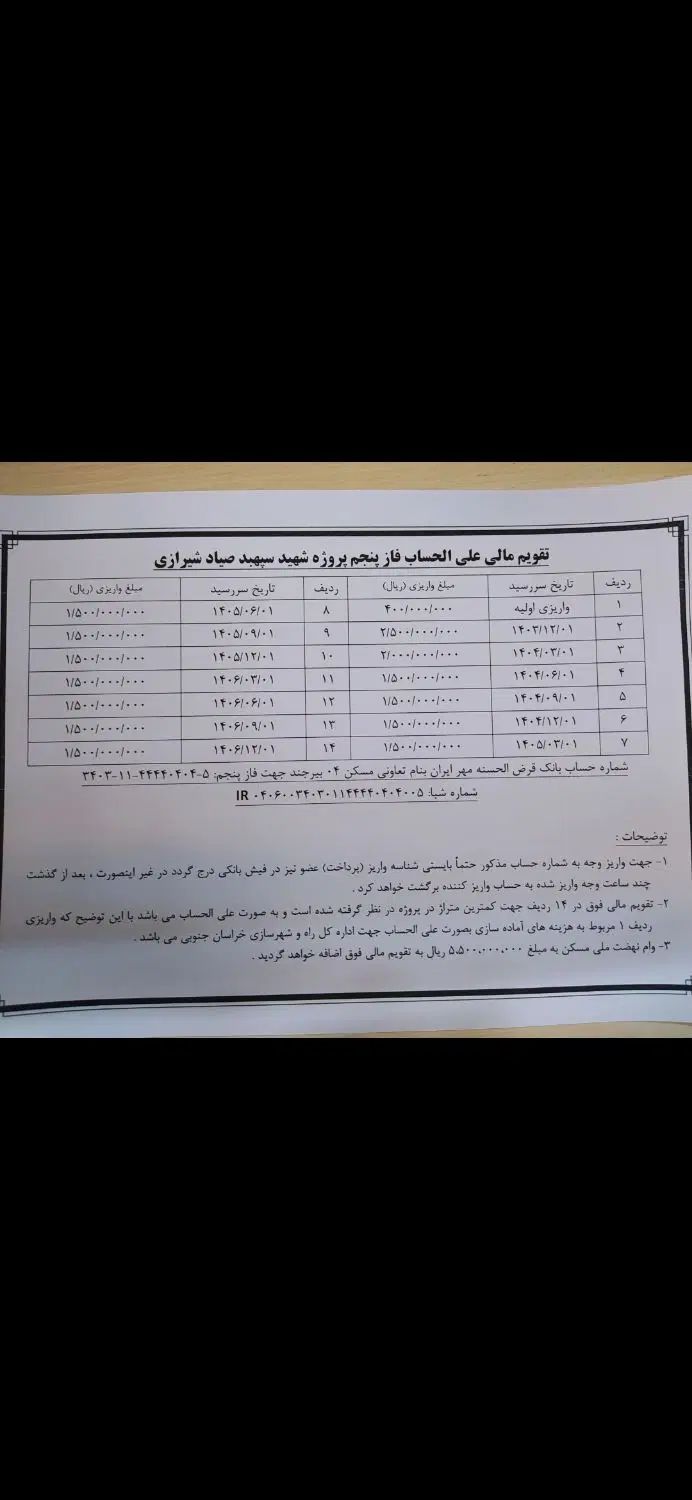 تقویم مالی علی الحساب فاز پنجم پروژه شهید سپهبد صیاد شیرازی
ردیف تاریخ سررسید مبلغ واریزی (ریال) ردیف تاریخ سررسید مبلغ واریزی (ریال)
۱ واریزی اولیه ۴۰۰/۰۰۰/۰۰۰ ۸ ۱۴۰۵/۰۶/۰۱ ۱/۵۰۰/۰۰۰/۰۰۰
۲ ۱۴۰۳/۱۲/۰۱ ۲/۵۰۰/۰۰۰/۰۰۰ ۹ ۱۴۰۵/۰۹/۰۱ ۱/۵۰۰/۰۰۰/۰۰۰
۳ ۱۴۰۴/۰۳/۰۱ ۲/۰۰۰/۰۰۰/۰۰۰ ۱۰ ۱۴۰۵/۱۲/۰۱ ۱/۵۰۰/۰۰۰/۰۰۰
۴ ۱۴۰۴/۰۶/۰۱ ۱/۵۰۰/۰۰۰/۰۰۰ ۱۱ ۱۴۰۶/۰۳/۰۱ ۱/۵۰۰/۰۰۰/۰۰۰
۵ ۱۴۰۴/۰۹/۰۱ ۱/۵۰۰/۰۰۰/۰۰۰ ۱۲ ۱۴۰۶/۰۶/۰۱ ۱/۵۰۰/۰۰۰/۰۰۰
۶ ۱۴۰۴/۱۲/۰۱ ۱/۵۰۰/۰۰۰/۰۰۰ ۱۳ ۱۴۰۶/۰۹/۰۱ ۱/۵۰۰/۰۰۰/۰۰۰
۷ ۱۴۰۵/۰۳/۰۱ ۱/۵۰۰/۰۰۰/۰۰۰ ۱۴ ۱۴۰۶/۱۲/۰۱ ۱/۵۰۰/۰۰۰/۰۰۰
شماره حساب بانک قرض الحسنه مهر ایران بنام تعاونی مسکن ۰۴ بیرجند جهت فاز پنجم: ۵-۴۴۴۴۰۴۰۴-۱۱-۳۴۰۳
شماره شبا: IR ۰۴۰۶۰۰۳۴۰۳۰۱۱۴۴۴۴۰۴۰۴۰۰۵
توضیحات :
۱- جهت واریز وجه به شماره حساب مذکور حتماً بایستی شناسه واریز (پرداخت) عضو نیز در فیش بانکی درج گردد در غیر اینصورت ، بعد از گذشت
چند ساعت وجه واریز شده به حساب واریز کننده برگشت خواهد کرد .
۲- تقویم مالی فوق در ۱۴ ردیف جهت کمترین متراژ در پروژه در نظر گرفته شده است و به صورت علی الحساب می باشد با این توضیح که واریزی
ردیف ۱ مربوط به هزینه های آماده سازی بصورت علی الحساب جهت اداره کل راه و شهرسازی خراسان جنوبی می باشد .
۳- وام نهضت ملی مسکن به مبلغ ۵.۵۰۰.۰۰۰.۰۰۰ ریال به تقویم مالی فوق اضافه خواهد گردید .